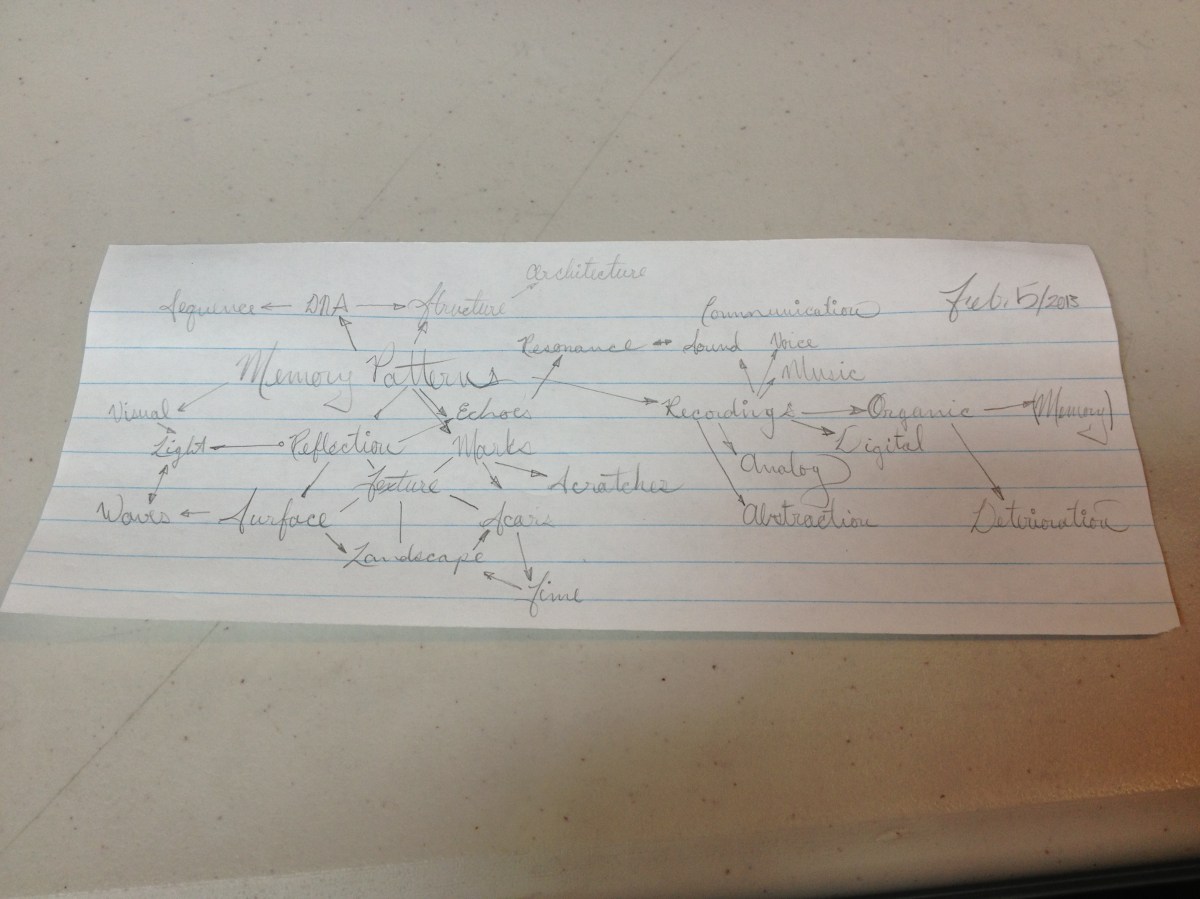 Architecture
Sequence DNA Structure
Communication
Feb. 5/2013
Resonance Sound Voice
Memory Patterns
Music
Visual
Echoes
Recordings Organic (Memory)
Light Reflection Marks
Digital
Analog
Texture Scratches
Waves Surface Scars
Abstraction Deterioration
Landscape
Time